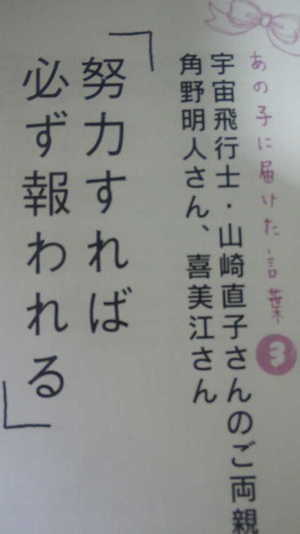 あの子に届けた言葉 3
宇宙飛行士・山崎直子さんのご両親
角野明人さん、喜美江さん
「努力すれば
必ず報われる」